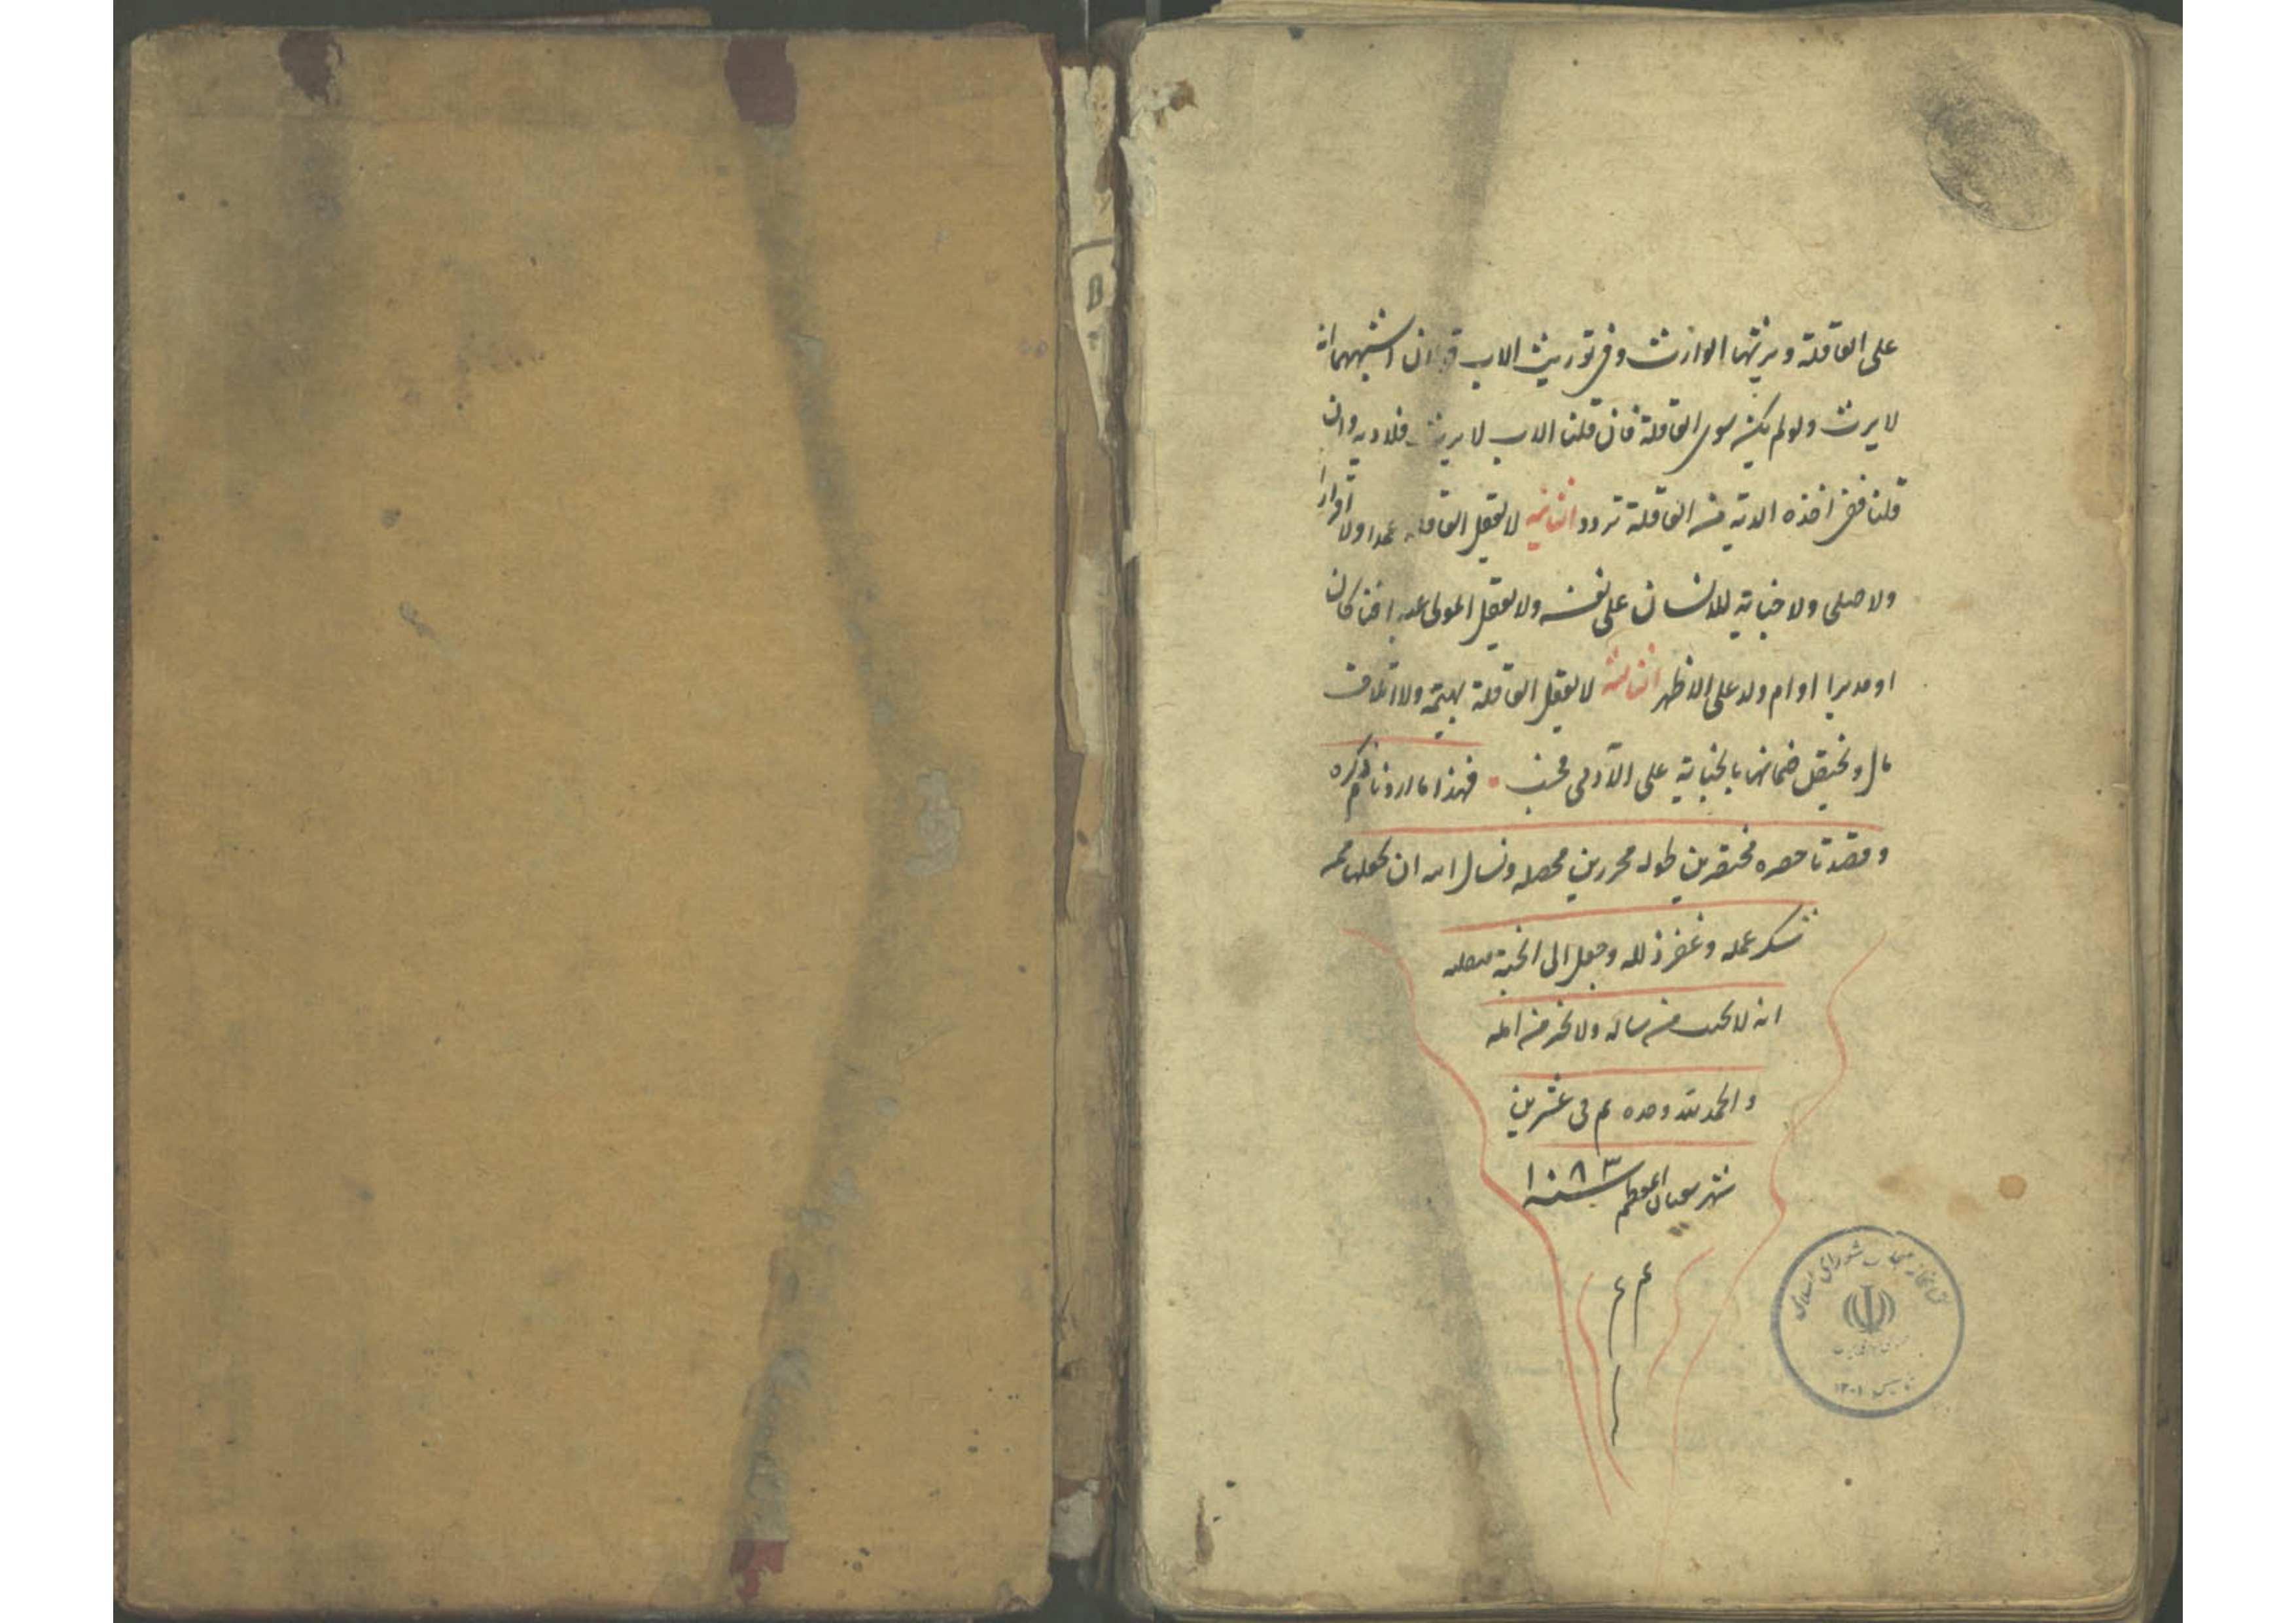 على العاقلة ويرثها الوارث وفى توريث الاب قولان اشبههما انه
لا يرث ولو لم يكن سوى العاقلة فان قلنا الاب لا يرث فلا دية وان
قلنا ففى اخذه الدية من العاقلة تردد الثانية لا تعقل العاقلة عمدا ولا اقرارا
ولا صلحى ولا جناية للانسان على نفسه ولا يعقل المولى عبدا قنا كان
او مدبرا او ام ولد على الاظهر الثالثة لا تعقل العاقلة بهيمة ولا اتلاف
مال ويختص ضمانها بالجناية على الآدمى فحسب فهذا ما اردنا ذكره
وقصدنا حصره مختصرين طوله محررين محصله ونسال الله ان يجعلنا ممن
شكر عمله وغفر زلله وجعل الى الجنة منقلبه
انه لا يخيب من سأله ولا يخسر من امله
والحمد لله وحده تم فى عشرين
شهر شعبان المعظم سنة ١٠٨٣
كتابخانه مجلس شورای اسلامی
تاسیس ١٣٠٢